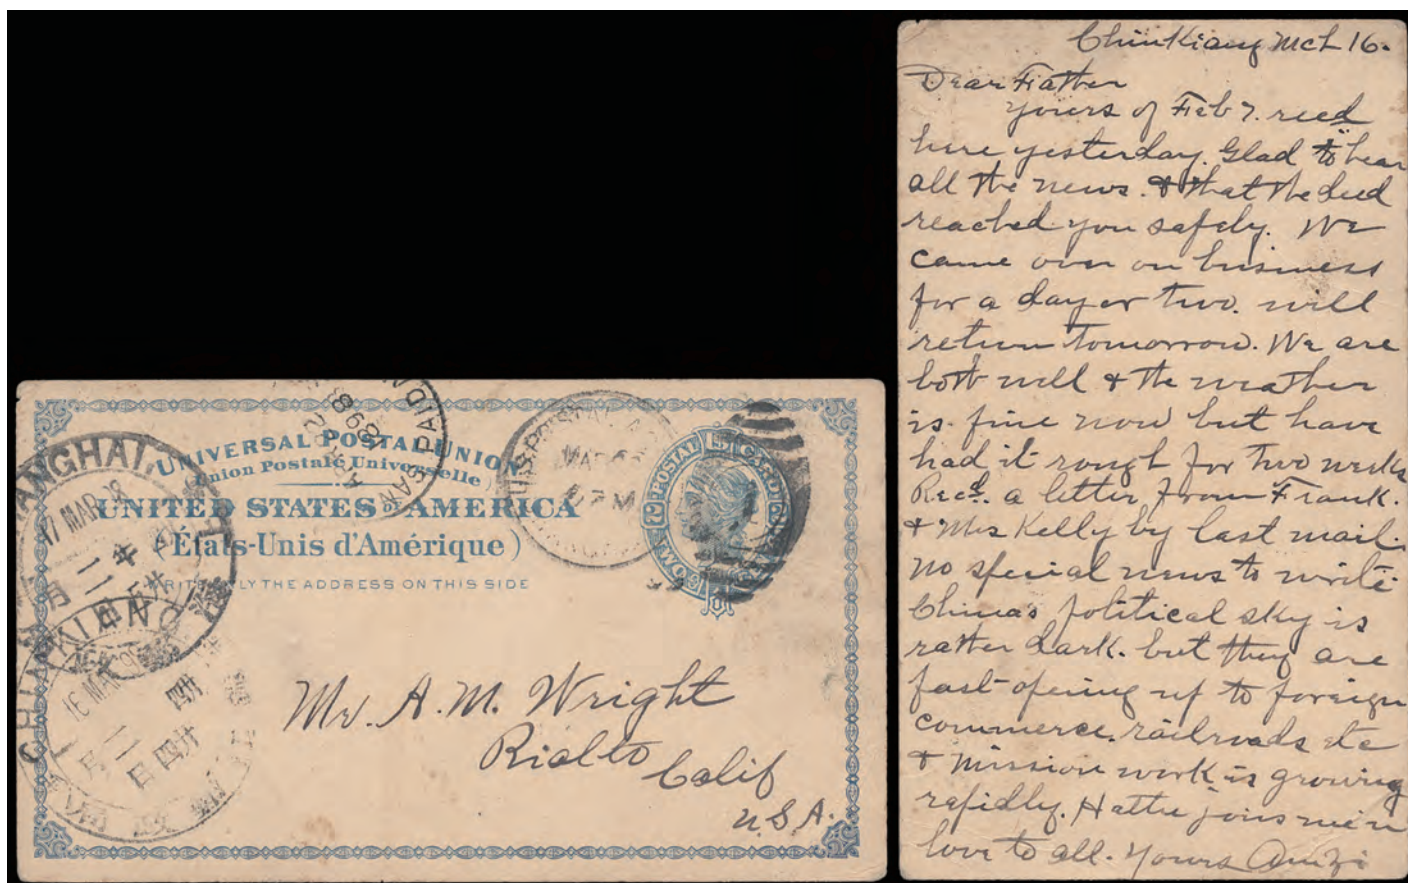 UNIVERSAL POSTAL UNION
(Union Postale Universelle)
UNITED STATES OF AMERICA
(États-Unis d'Amérique)
WRITE ONLY THE ADDRESS ON THIS SIDE
POSTAL CARD
TWO
SHANGHAI
17 MAR 98
CHINKIANG
16 MAR 98
SAN
PAID
1898
U.S. POSTAL
MAR
7 PM
Mr. A. M. Wright
Rialto
Calif
U.S.A.
Chinkiang Mch 16.
Dear Father
Yours of Feb 7. recd
here yesterday. Glad to hear
all the news. & that the deed
reached you safely. We
came over on business
for a day or two. will
return tomorrow. We are
both well & the weather
is fine now but have
had it rough for two weeks
Recd. a letter from Frank.
& Mrs Kelly by last mail.
No special news to write
China's political sky is
rather dark. but they are
fast opening up to foreign
commerce. railroads etc
& mission work is growing
rapidly. Hattie joins me in
love to all. Yours Amzi